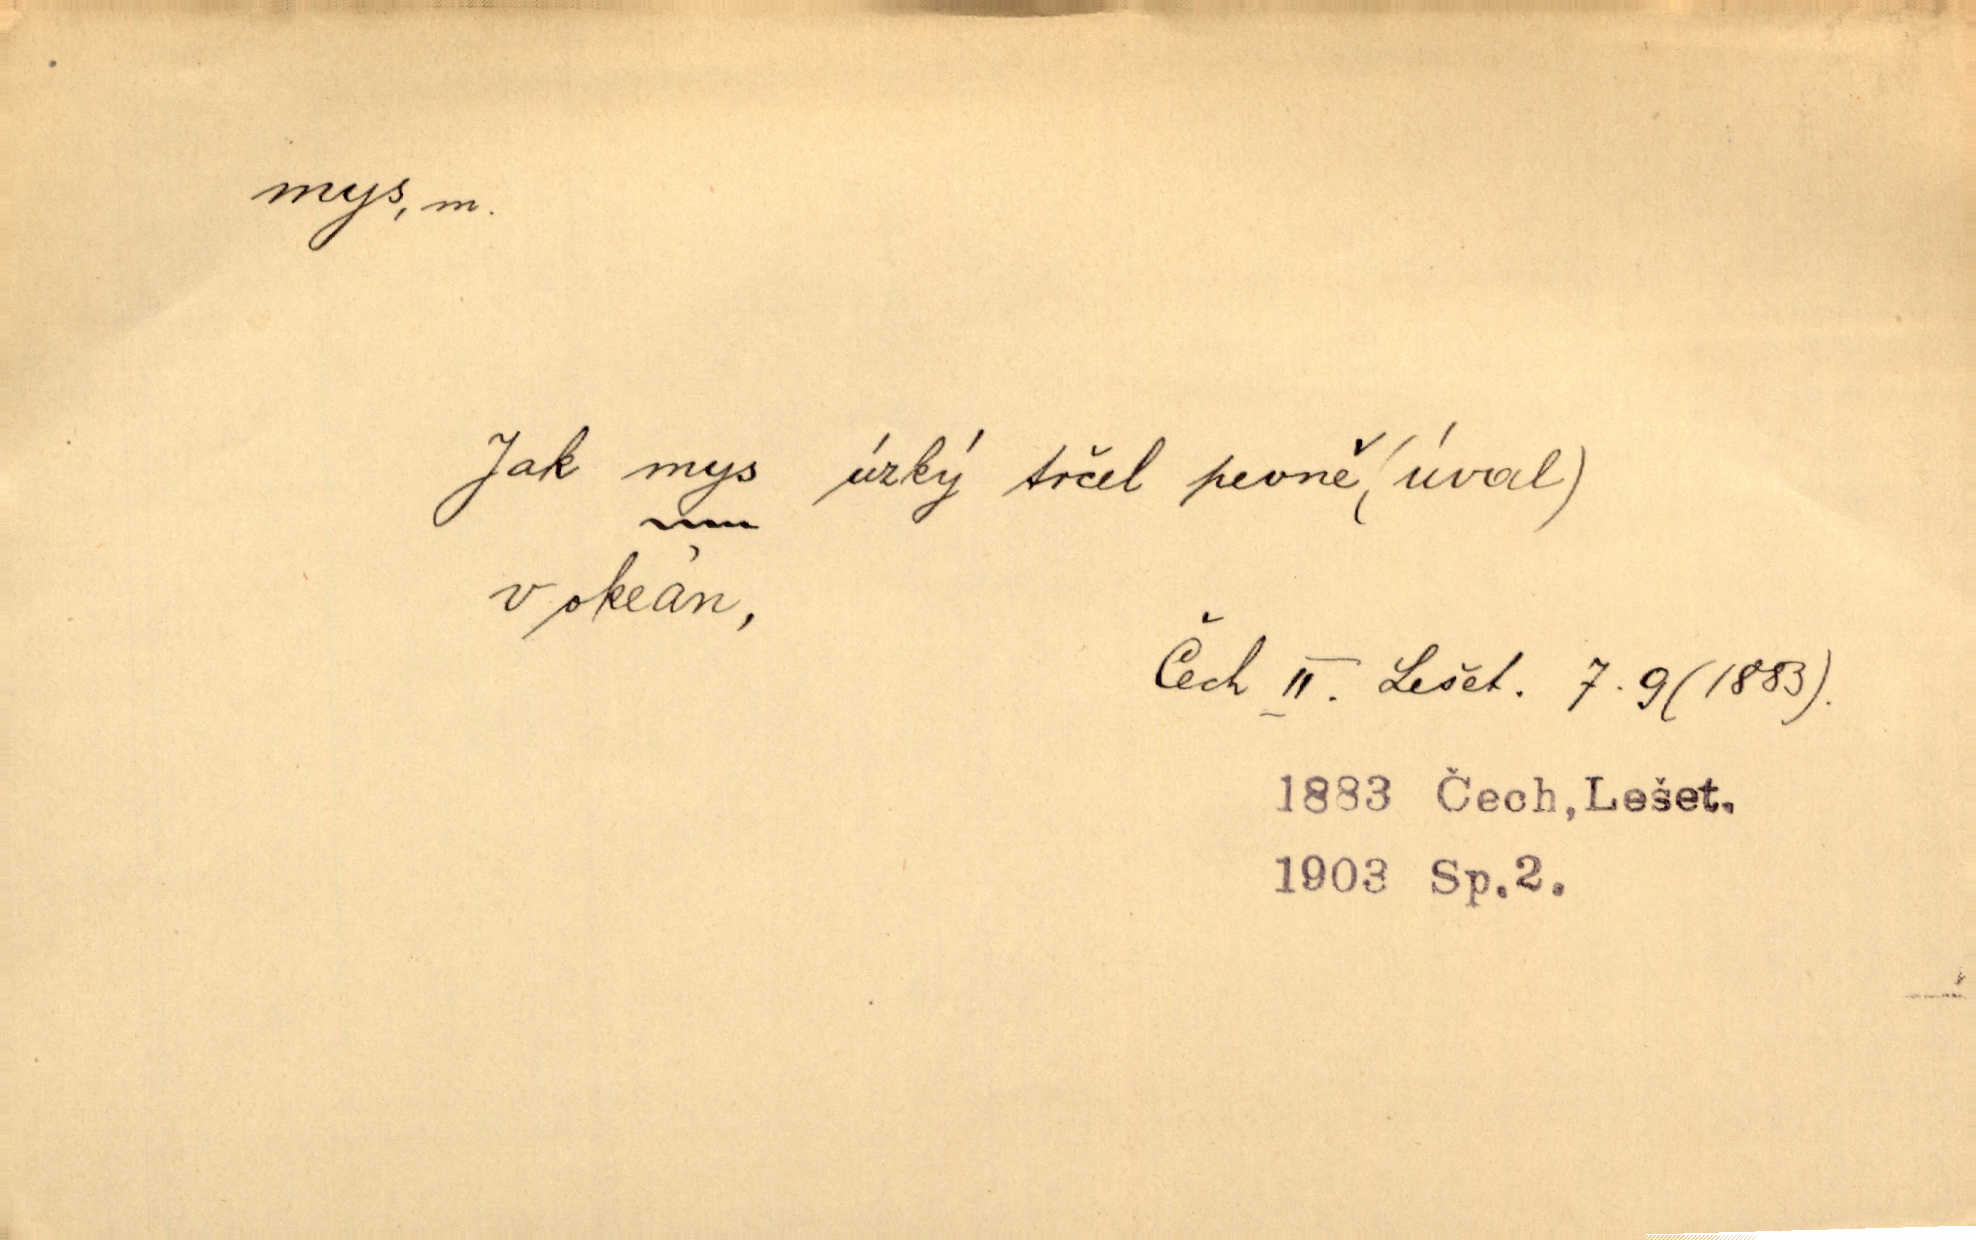 mys, m.
Jak mys úzký trčel pevně (úval)
v okeán,
Čech II. Lešet. 7. 9 (1883).
1883 Čech, Lešet.
1903 Sp. 2.